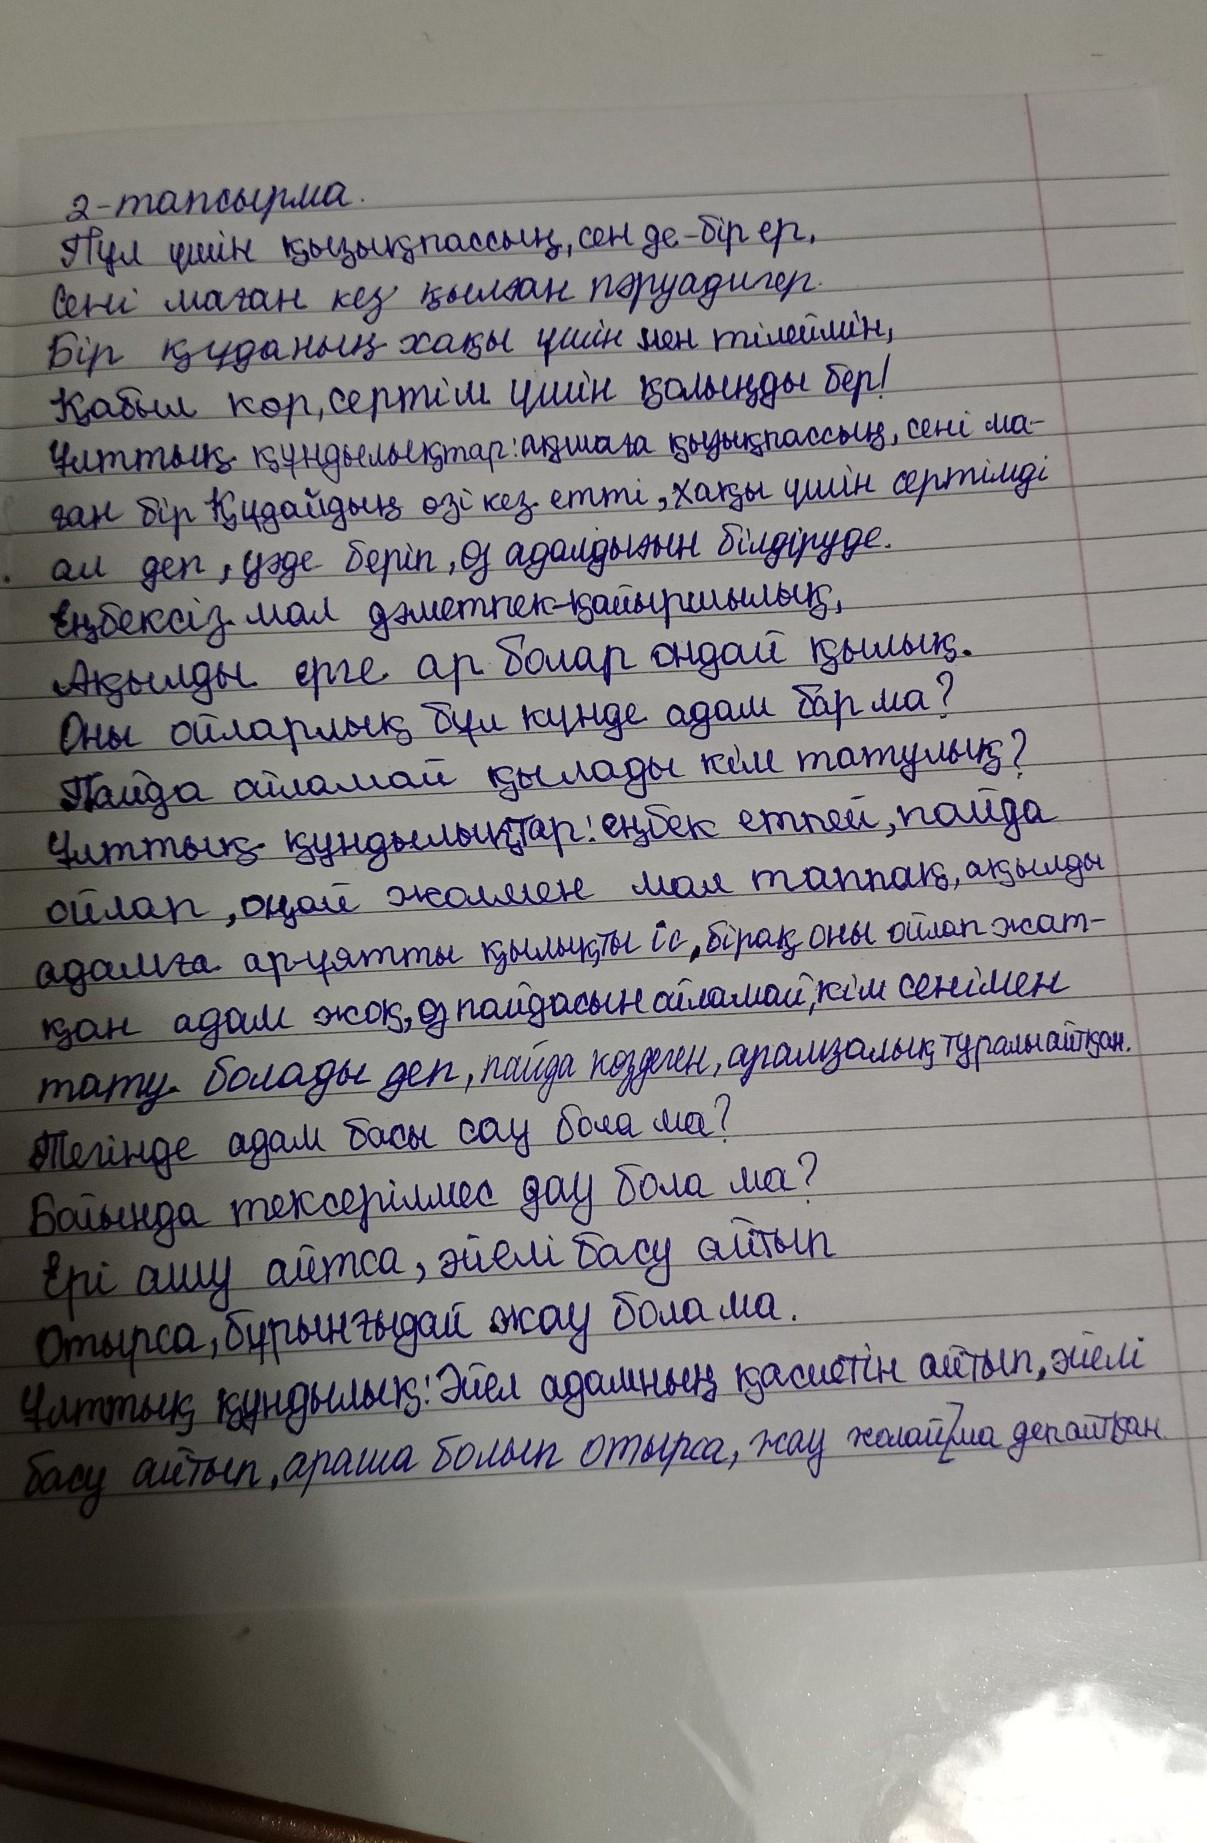 2-тапсырма.
Пұл үшін қызықпассың, сен де-бір ер,
Сені маған кез қылған пәруәдигер.
Бір құданың хақы үшін мен тілеймін,
Қабыл көр, сертім үшін қолыңды бер!
Ұлттық құндылықтар: ақшаға қызықпассың, сені ма-
ған бір Құдайдың өзі кез етті, хақы үшін сертімді
ал деп, уәде беріп, өз адалдығын білдіруде.
Еңбексіз мал дәметпек-қайыршылық,
Ақылды ерге ар болар ондай қылық.
Оны ойларлық бұл күнде адам бар ма?
Пайда ойламай қылады кім татулық?
Ұлттық құндылықтар: еңбек етпей, пайда
ойлап, оңай жолмен мал таппақ, ақылды
адамға ар-ұятты қылықты іс, бірақ оны ойлап жат-
қан адам жоқ, өз пайдасын ойламай, кім сенімен
тату болады деп, пайда көздеген, арамзалық туралы айтқан.
Тегінде адам басы сау бола ма?
Бойында тексерілмес дау бола ма?
Ері ашу айтса, әйелі басу айтып
Отырса, бұрынғыдай жау бола ма.
Ұлттық құндылық: Әйел адамның қасиетін айтып, әйелі
басу айтып, араша болып отырса, жау жолай ма деп айтқан